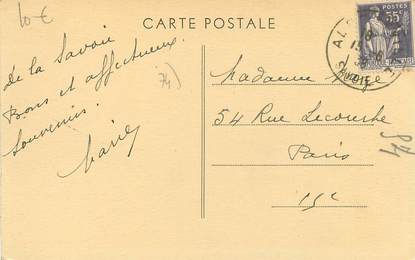 10 €
CARTE POSTALE
De la Savoie
Bons et affectueux
Souvenirs.
74)
Madame
54 Rue Lecourbe
Paris
15e
POSTES
55c
SAVOIE